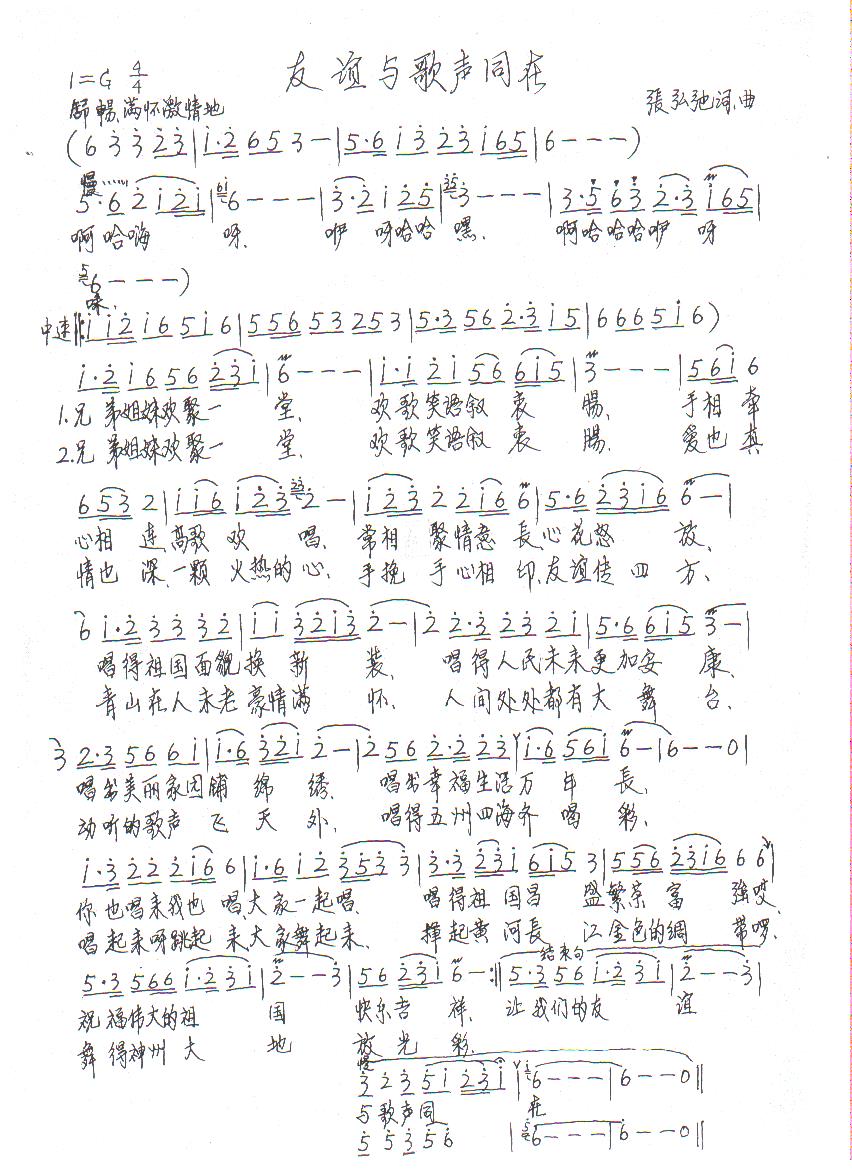 友谊与歌声同在
1=G 4/4
舒畅、满怀激情地
張弘弛词、曲
(6 3 3 2 3 | 1·2 6 5 3 — | 5·6 1 3 2 3 1 6 5 | 6 — — — )
慢
5·6 2 1 2 1 | 6 — — — | 3·2 1 2 5 | 3 — — — | 3·5 6 3 2·3 1 6 5 |
啊哈嗨 呀、 咿 呀哈哈 嘿、 啊哈哈哈咿 呀
6 — — — )
咪、
中速 ‖: 1 1 2 1 6 5 1 6 | 5 5 6 5 3 2 5 3 | 5·3 5 6 2·3 1 5 | 6 6 6 5 1 6 )
1·2 1 6 5 6 2 3 1 | 6 — — — | 1·1 2 1 5 6 6 1 5 | 3 — — — | 5 6 1 6
1.兄弟姐妹欢聚一 堂、 欢歌笑语叙 衷 腸、 手相 牵
2.兄弟姐妹欢聚一 堂、 欢歌笑语叙 衷 腸、 爱也 真
6 5 3 2 | 1 1 6 1 2 3 2 — | 1 2 3 2 2 1 6 6 | 5·6 2 3 1 6 6 — |
心相 連、高歌 欢 唱、 常相 聚情意 長、心花怒 放、
情也 深、一颗 火热的 心、手挽 手心相 印、友谊传 四 方、
6 1·2 3 3 3 2 | 1 1 3 2 1 3 2 — | 2 2·3 2 3 2 1 | 5·6 6 1 5 3 — |
唱得祖国面貌换 新 装、 唱得人民未来更加安 康、
青山在人未老豪情满 怀、 人间处处都有大 舞 台、
3 2·3 5 6 6 1 | 1·6 3 2 1 2 — | 2 5 6 2·2 2 3 | 1·6 5 6 1 6 — | 6 — — 0 |
唱出美丽家园铺 绵 绣、 唱出幸福生活万 年 長、
动听的歌声 飞 天 外、 唱得五州四海齐 喝 彩、
1·3 2 2 2 1 6 6 | 1·6 1 2 3 5 3 3 | 3·3 2 3 1 6 1 5 3 | 5 5 6 2 3 1 6 6 6 |
你也唱来我也 唱、大家一起唱、 唱得祖 国昌 盛繁荣 富 強哎、
唱起来呀跳起 来、大家舞起来、 揮起黄 河長 江金色的綢 带啰、
结束句
5·3 5 6 6 1·2 3 1 | 2 — — 3 | 5 6 2 3 1 6 — :‖ 5·3 5 6 1·2 3 1 | 2 — — 3 |
祝福伟大的祖 国 快乐吉 祥、 让我们的友 谊
舞得神州大 地 放光 彩、
慢
3 2 3 5 1 2 3 1 | 6 — — — | 6 — — 0 ‖
与歌声同 在
5 5 3 5 6 | 6 — — — | 6 — — 0 ‖